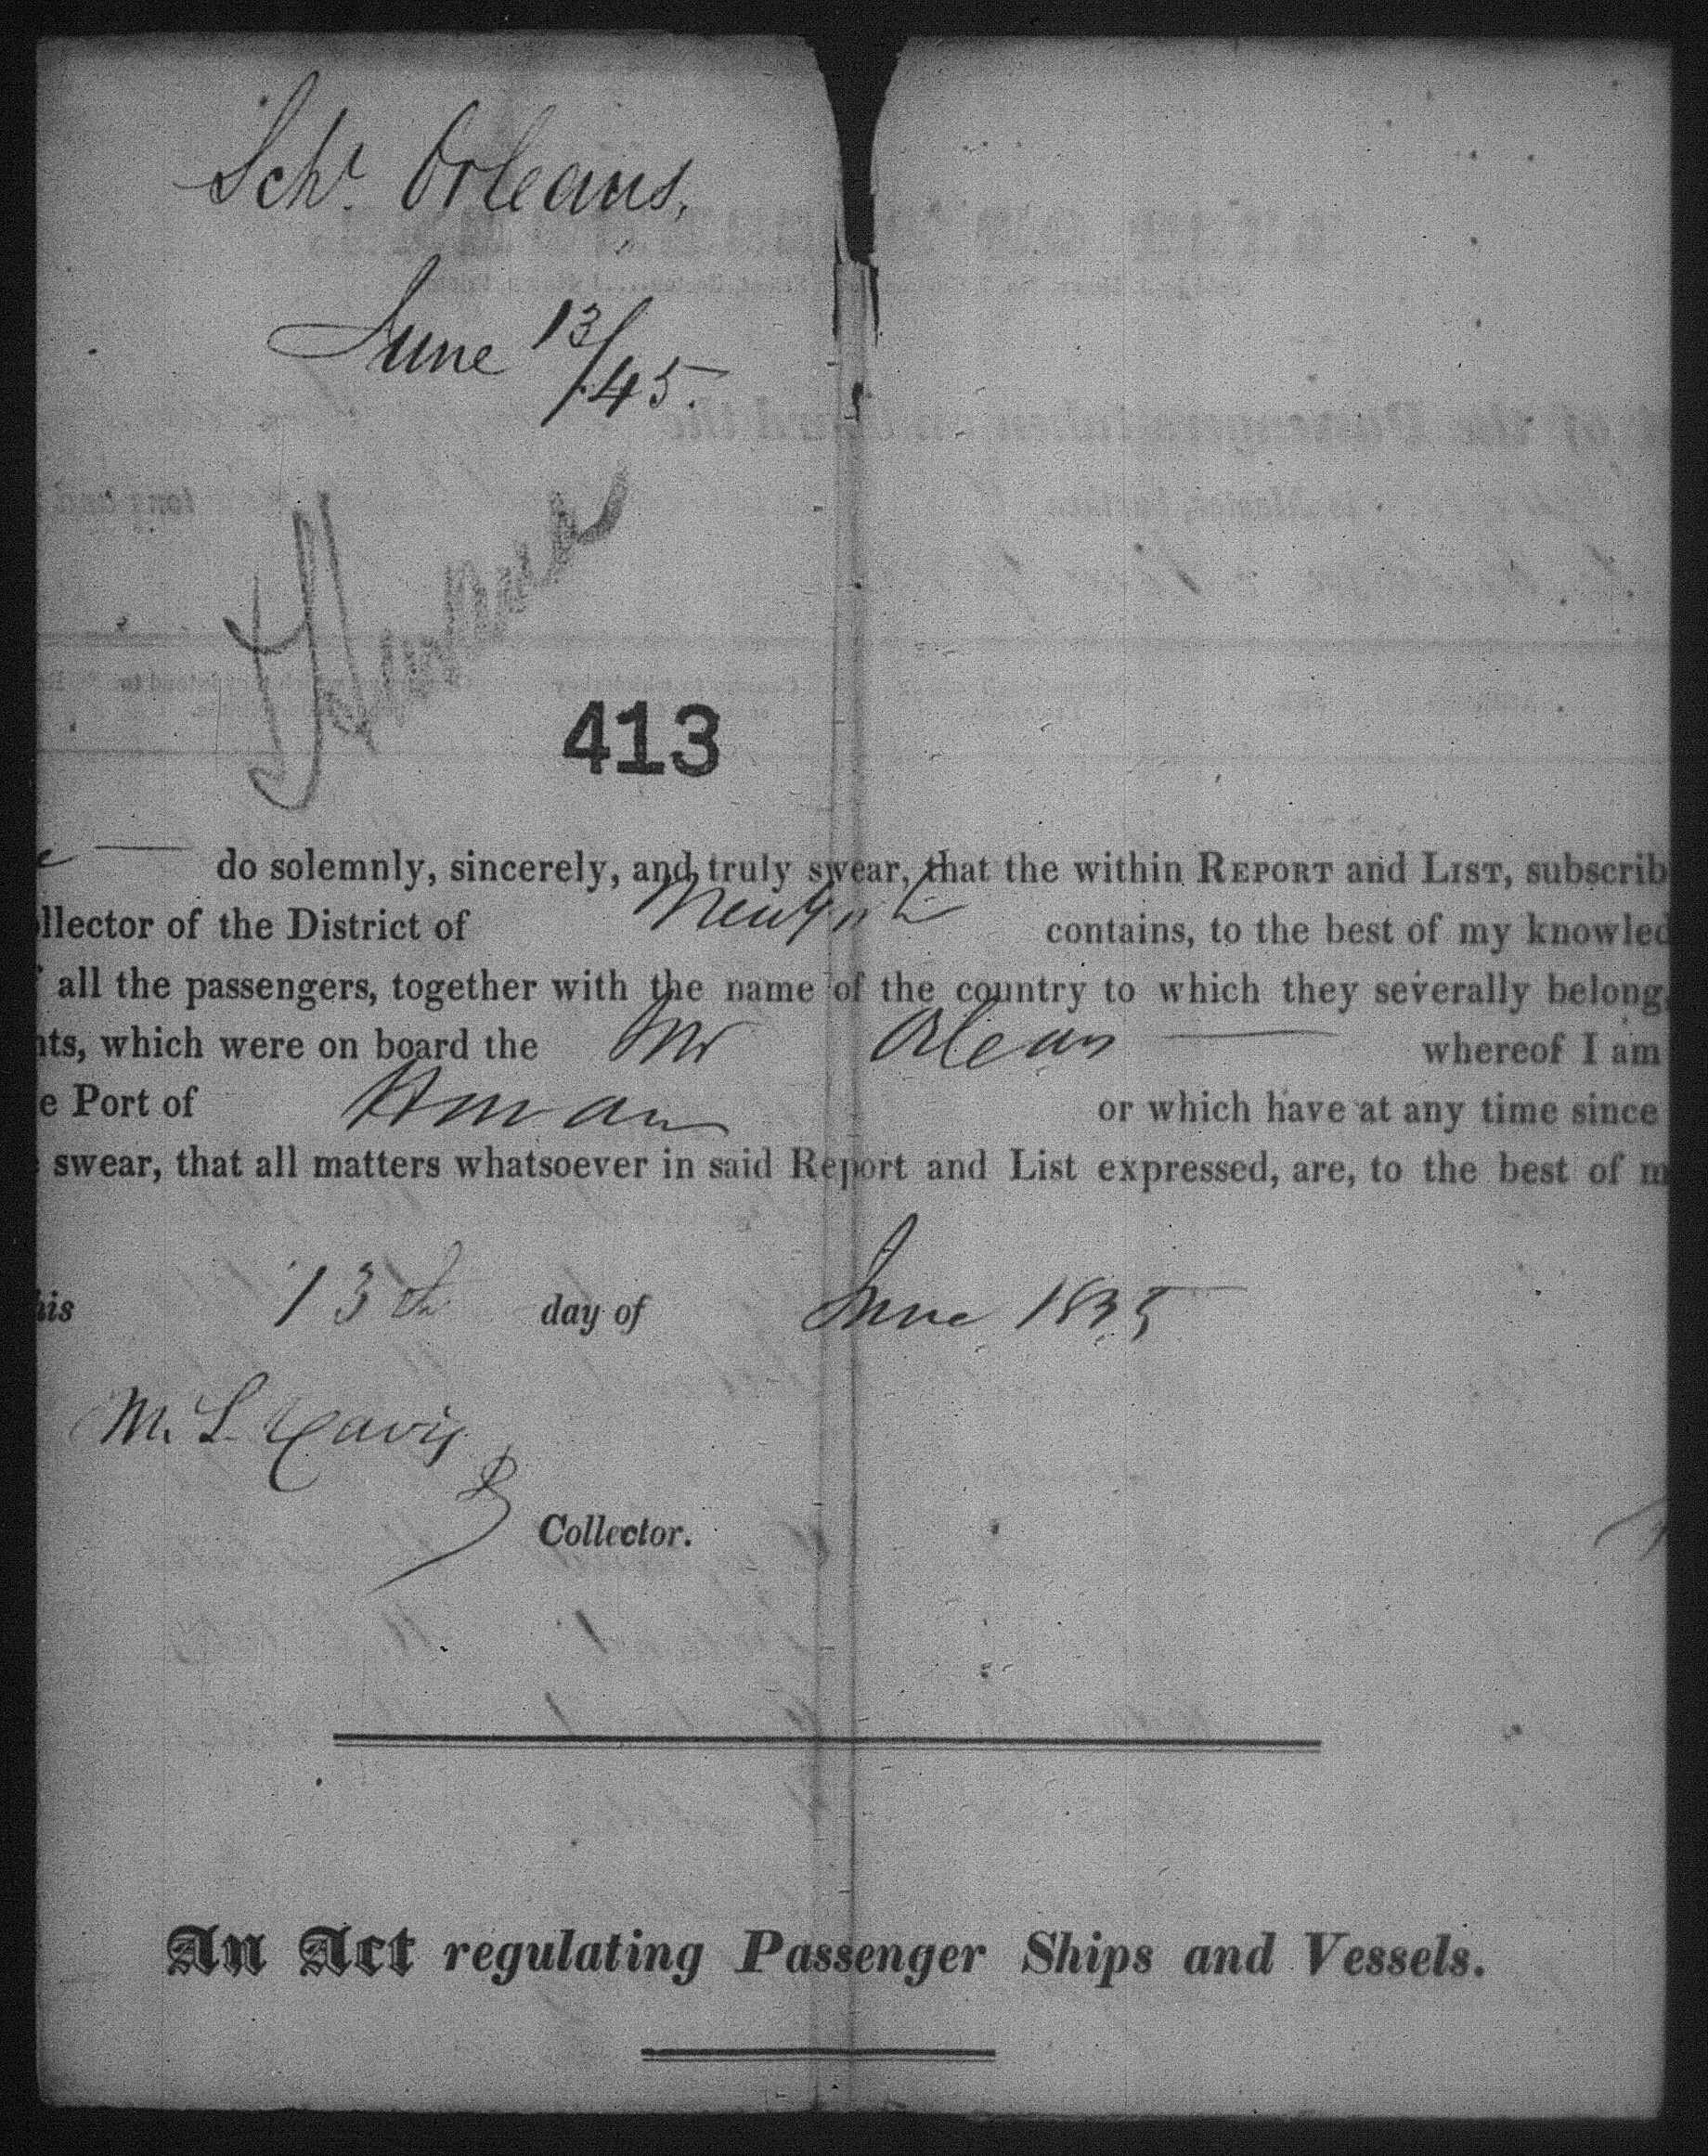 Schr. Orleans,
June 13/45.
413
do solemnly, sincerely, and truly swear, that the within REPORT and LIST, subscrib
llector of the District of New York contains, to the best of my knowled
all the passengers, together with the name of the country to which they severally belong,
nts, which were on board the Orleans whereof I am
e Port of or which have at any time since
swear, that all matters whatsoever in said Report and List expressed, are, to the best of m
his 13th day of June 1845
M. L. Davis
Collector.
An Act regulating Passenger Ships and Vessels.